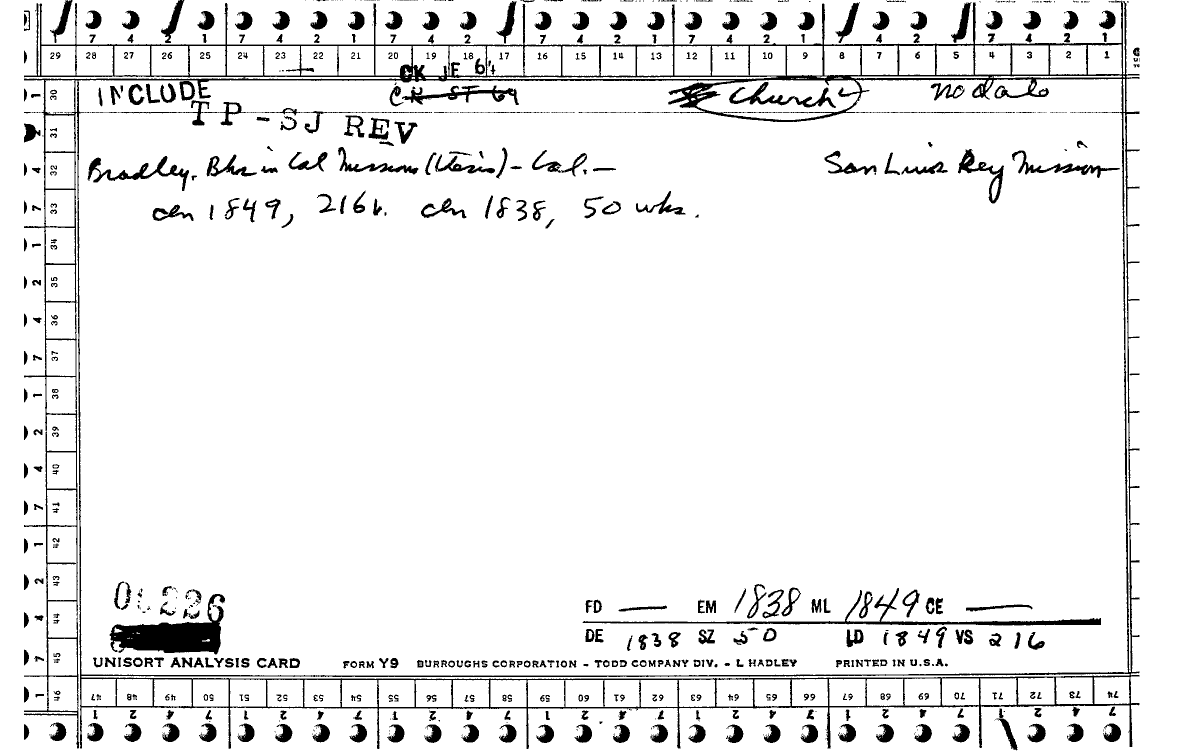 7 4 2 1 7 4 2 1 7 4 2 1 7 4 2 1 7 4 2 1 7 4 2 1 7 4 2 1
29 28 27 26 25 24 23 22 21 20 19 18 17 16 15 14 13 12 11 10 9 8 7 6 5 4 3 2 1
CK JE 64
INCLUDE CK ST 64 Church no date
TP-SJ REV
Bradley. Bks in Cal Missions (thesis) - Cal. — San Luis Rey Mission
ca 1849, 216 v. ca 1838, 50 wks.
1 30
2 31
4 32
7 33
1 34
2 35
4 36
7 37
1 38
2 39
4 40
7 41
1 42
2 43
4 44
7 45
1 46
06226
FD — EM 1838 ML 1849 CE —
DE 1838 SZ 50 LD 1849 VS 216
UNISORT ANALYSIS CARD FORM Y9 BURROUGHS CORPORATION - TODD COMPANY DIV. - L HADLEY PRINTED IN U.S.A.
47 48 49 50 51 52 53 54 55 56 57 58 59 60 61 62 63 64 65 66 67 68 69 70 71 72 73 74
1 2 4 7 1 2 4 7 1 2 4 7 1 2 4 7 1 2 4 7 1 2 4 7 1 2 4 7